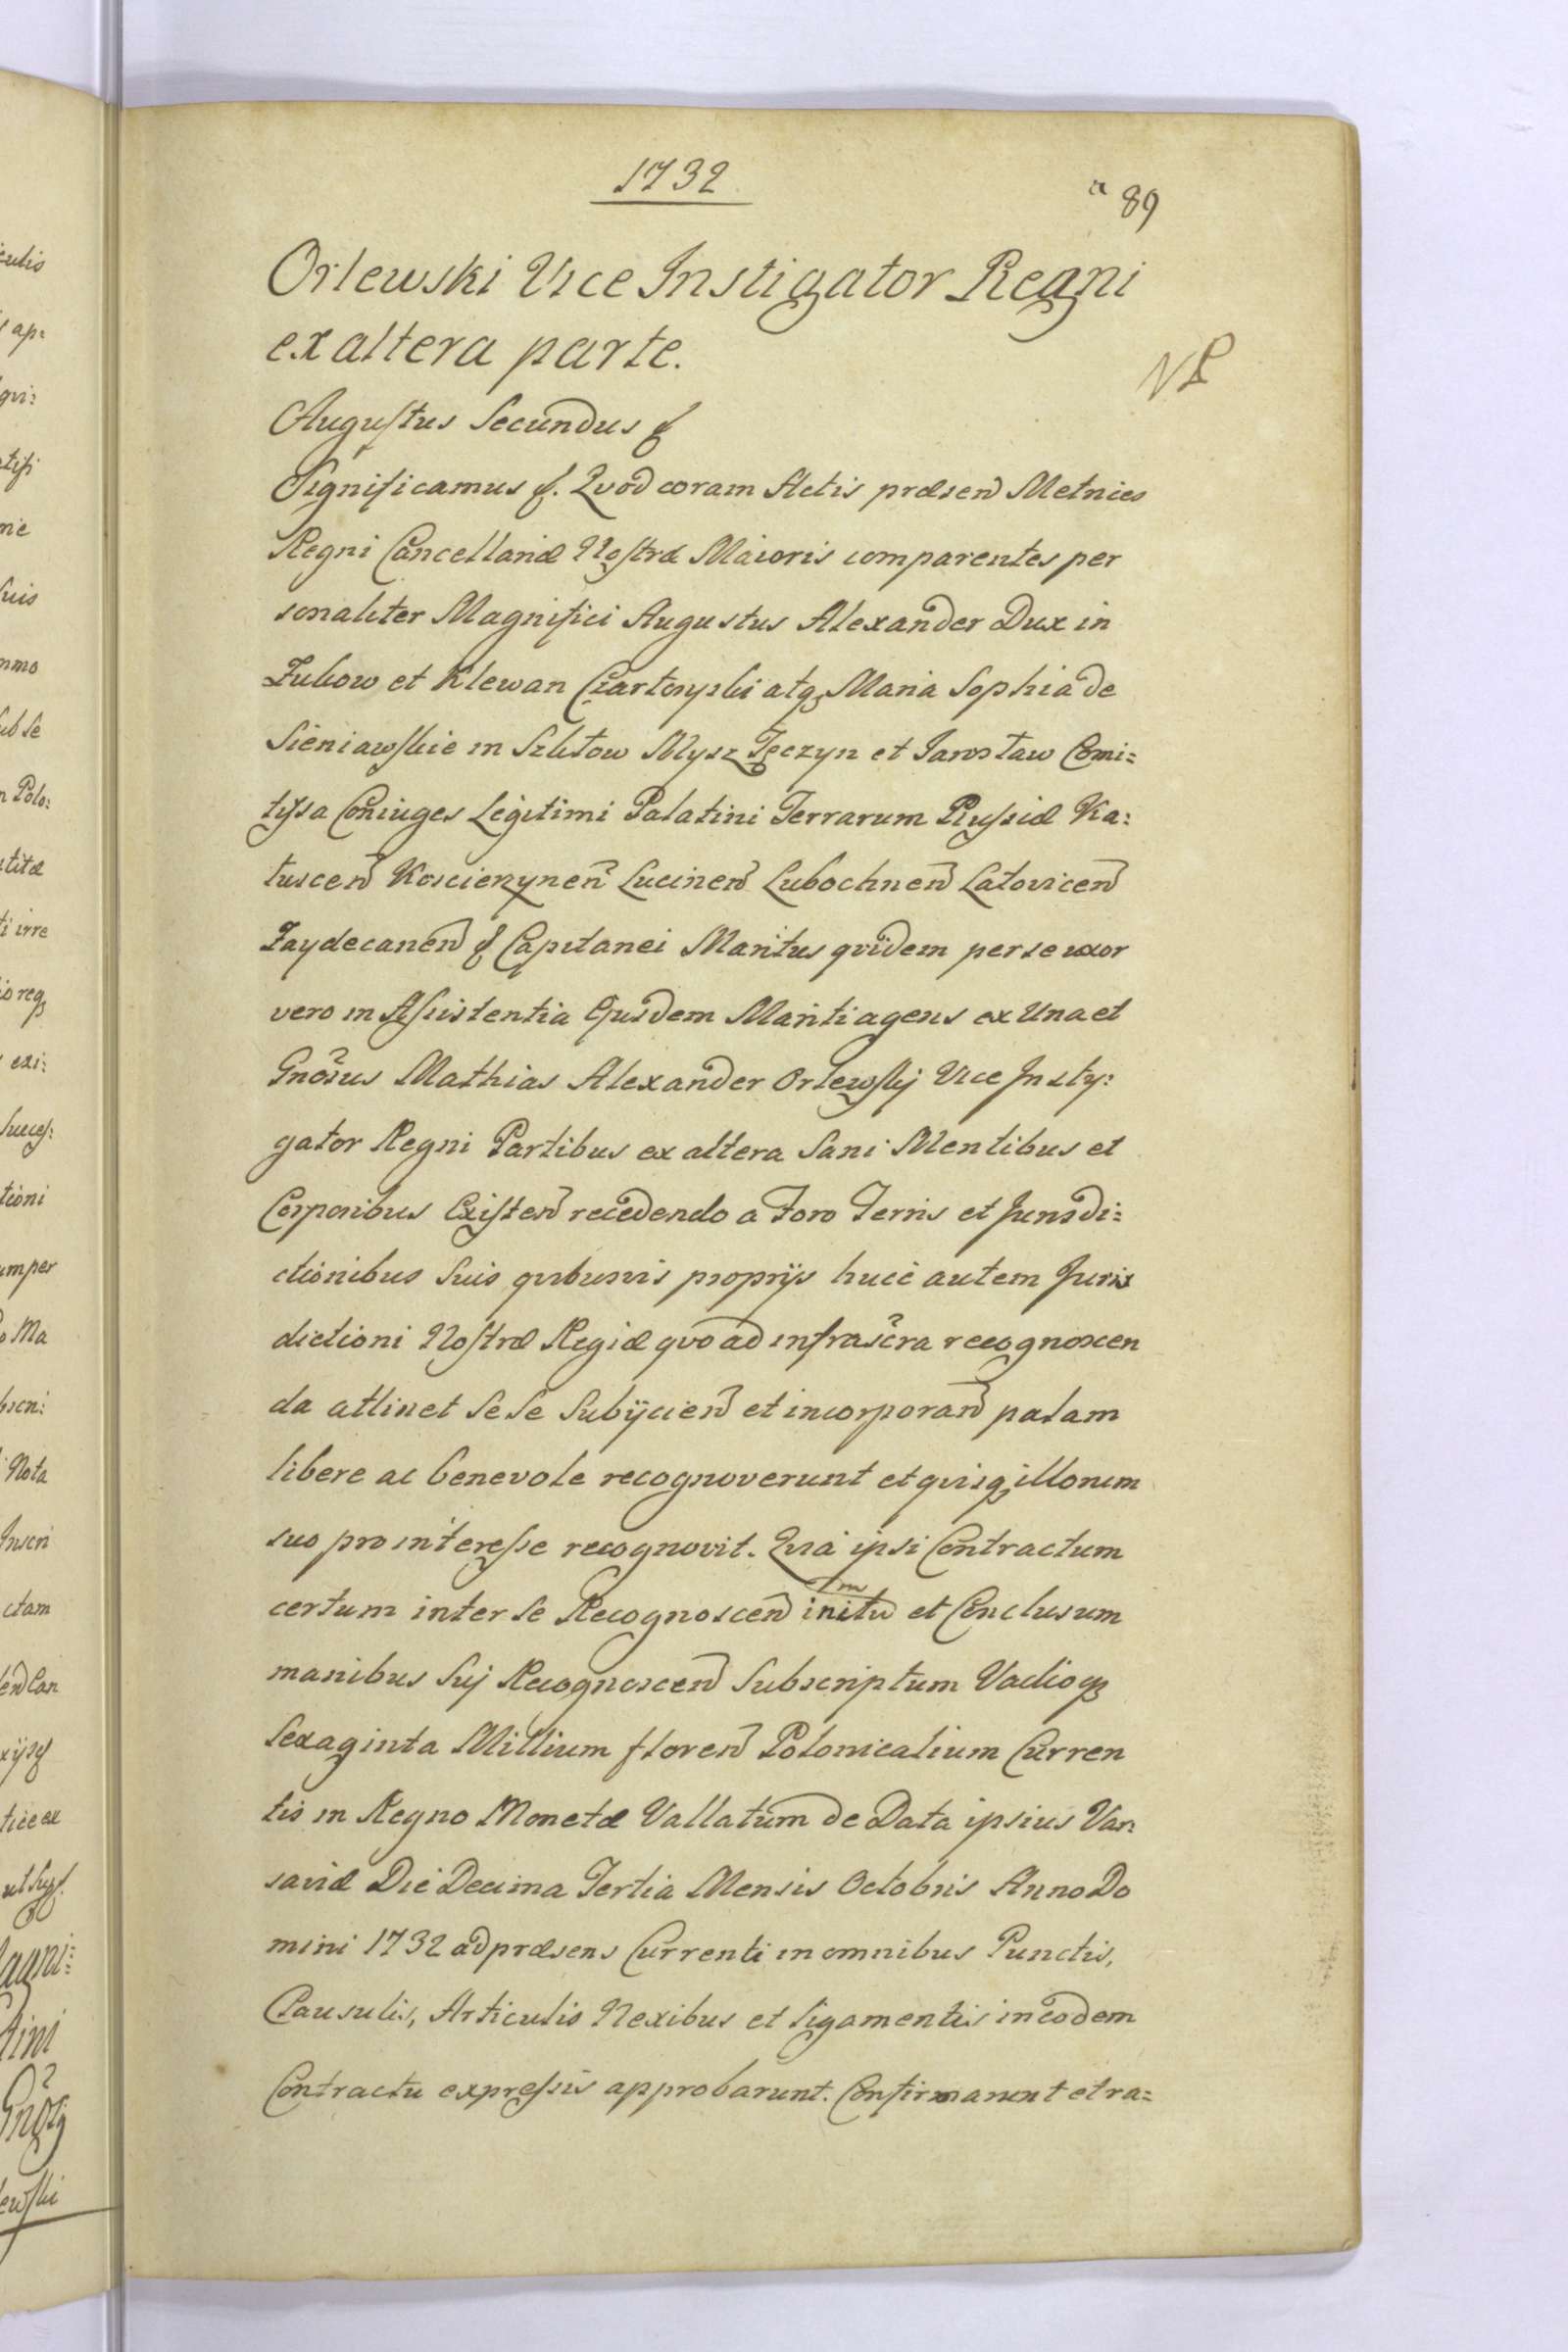 1732
a 89
Orlewski Vice Instigator Regni
ex altera parte.
NP
Augustus Secundus &
Significamus &. Quod coram Actis præsen̄ Metrices
Regni Cancellariæ Nostræ Maioris comparentes per
sonaliter Magnifici Augustus Alexander Dux in
Zukow et Klewan Czartoryski atq Maria Sophia de
Sieniawskie in Szkłow Mysz Tęczyn et Jarosław Comi=
tyssa Coniuges Legitimi Palatini Terrarum Russiæ Ka:
łuscen̄ Koscierzynen̄ Lucinen̄ Lubochnen̄ Latovicen̄
Zaydecanen̄ & Capitanei Maritus qvidem per se uxor
vero in Assistentia Ejusdem Mariti agens ex Una et
Gnōsus Mathias Alexander Orlewskij Vice Insty:
gator Regni Partibus ex altera Sani Mentibus et
Corporibus Existen̄ recedendo a Foro Terris et Jurisdi=
ctionibus Suis qvibusvis proprijs huic autem Juris
dictioni Nostræ Regiæ qvo ad infrascra recognoscen
da attinet Sese Subijcien̄ et incorporan̄ palam
libere ac benevole recognoverunt et qvisq illorum
suo pro interesse recognovit. Qvia ipsi Contractum
certum inter se Recognoscen̄ initū et Conclusum
manibus Suj Recognoscen̄ Subscriptum Vadioq
Sexaginta Millium floren̄ Polonicalium Curren
tis in Regno Monetæ Vallatum de Data ipsius Var:
saviæ Die Decima Tertia Mensis Octobris Anno Do
mini 1732 ad præsens Currenti in omnibus Punctis,
Clausulis, Articulis Nexibus et ligamentis in eodem
Contractu expressis approbarunt. Confirmarunt et ra=